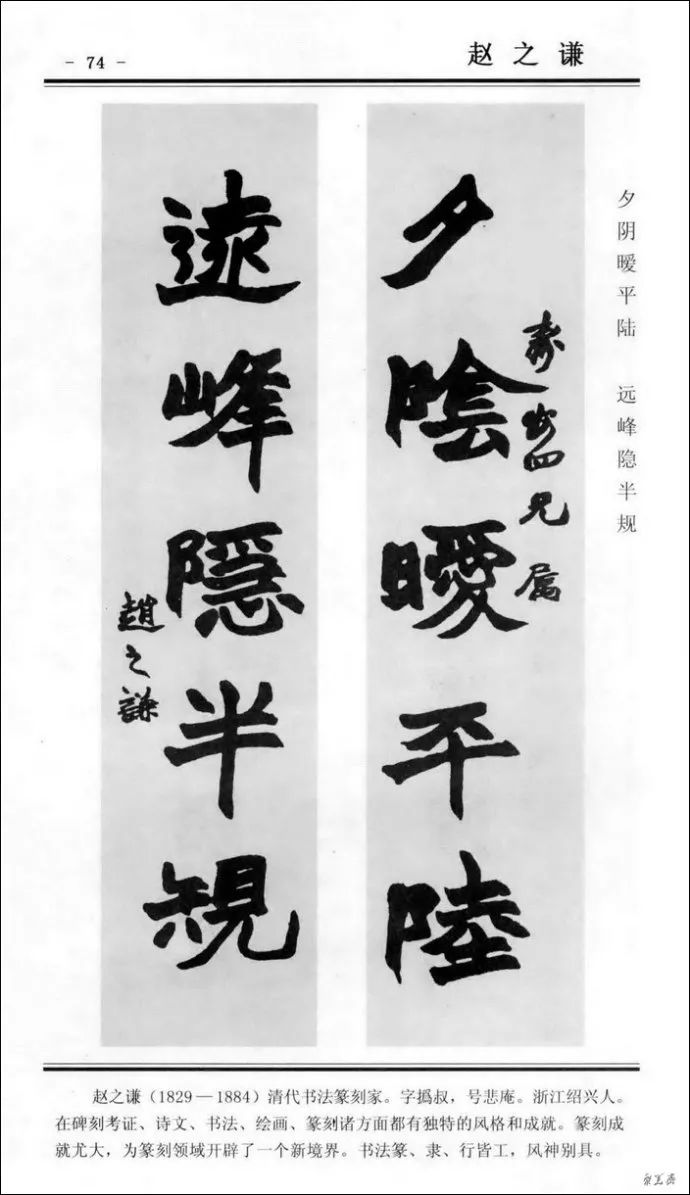 - 74 -
赵之谦
夕阴暧平陆　远峰隐半规
夕陰曖平陸
四兄属
遠峰隱半規
趙之謙
赵之谦（1829—1884）清代书法篆刻家。字撝叔，号悲庵。浙江绍兴人。
在碑刻考证、诗文、书法、绘画、篆刻诸方面都有独特的风格和成就。篆刻成
就尤大，为篆刻领域开辟了一个新境界。书法篆、隶、行皆工，风神别具。